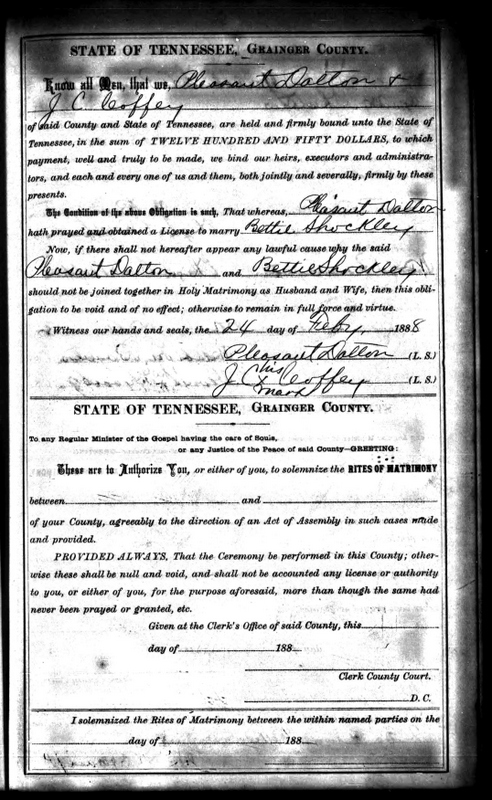 STATE OF TENNESSEE, GRAINGER COUNTY.
Know all Men, that we, Pleasant Dalton &
J. C. Coffey
of said County and State of Tennessee, are held and firmly bound unto the State of
Tennessee, in the sum of TWELVE HUNDRED AND FIFTY DOLLARS, to which
payment, well and truly to be made, we bind our heirs, executors and administra-
tors, and each and every one of us and them, both jointly and severally, firmly by these
presents.
The Condition of the above Obligation is such, That whereas, Pleasant Dalton
hath prayed and obtained a License to marry Bettie Shockley
Now, if there shall not hereafter appear any lawful cause why the said
Pleasant Dalton and Bettie Shockley
should not be joined together in Holy Matrimony as Husband and Wife, then this obli-
gation to be void and of no effect; otherwise to remain in full force and virtue.
Witness our hands and seals, the 24 day of Feby, 1888
Pleasant Dalton (L. S.)
his
J. C. X Coffey (L. S.)
mark
STATE OF TENNESSEE, GRAINGER COUNTY.
To any Regular Minister of the Gospel having the care of Souls,
or any Justice of the Peace of said County—GREETING:
These are to Authorize You, or either of you, to solemnize the RITES OF MATRIMONY
between and
of your County, agreeably to the direction of an Act of Assembly in such cases made
and provided.
PROVIDED ALWAYS, That the Ceremony be performed in this County; other-
wise these shall be null and void, and shall not be accounted any license or authority
to you, or either of you, for the purpose aforesaid, more than though the same had
never been prayed or granted, etc.
Given at the Clerk's Office of said County, this
day of 188
Clerk County Court.
D. C.
I solemnized the Rites of Matrimony between the within named parties on the
day of 188